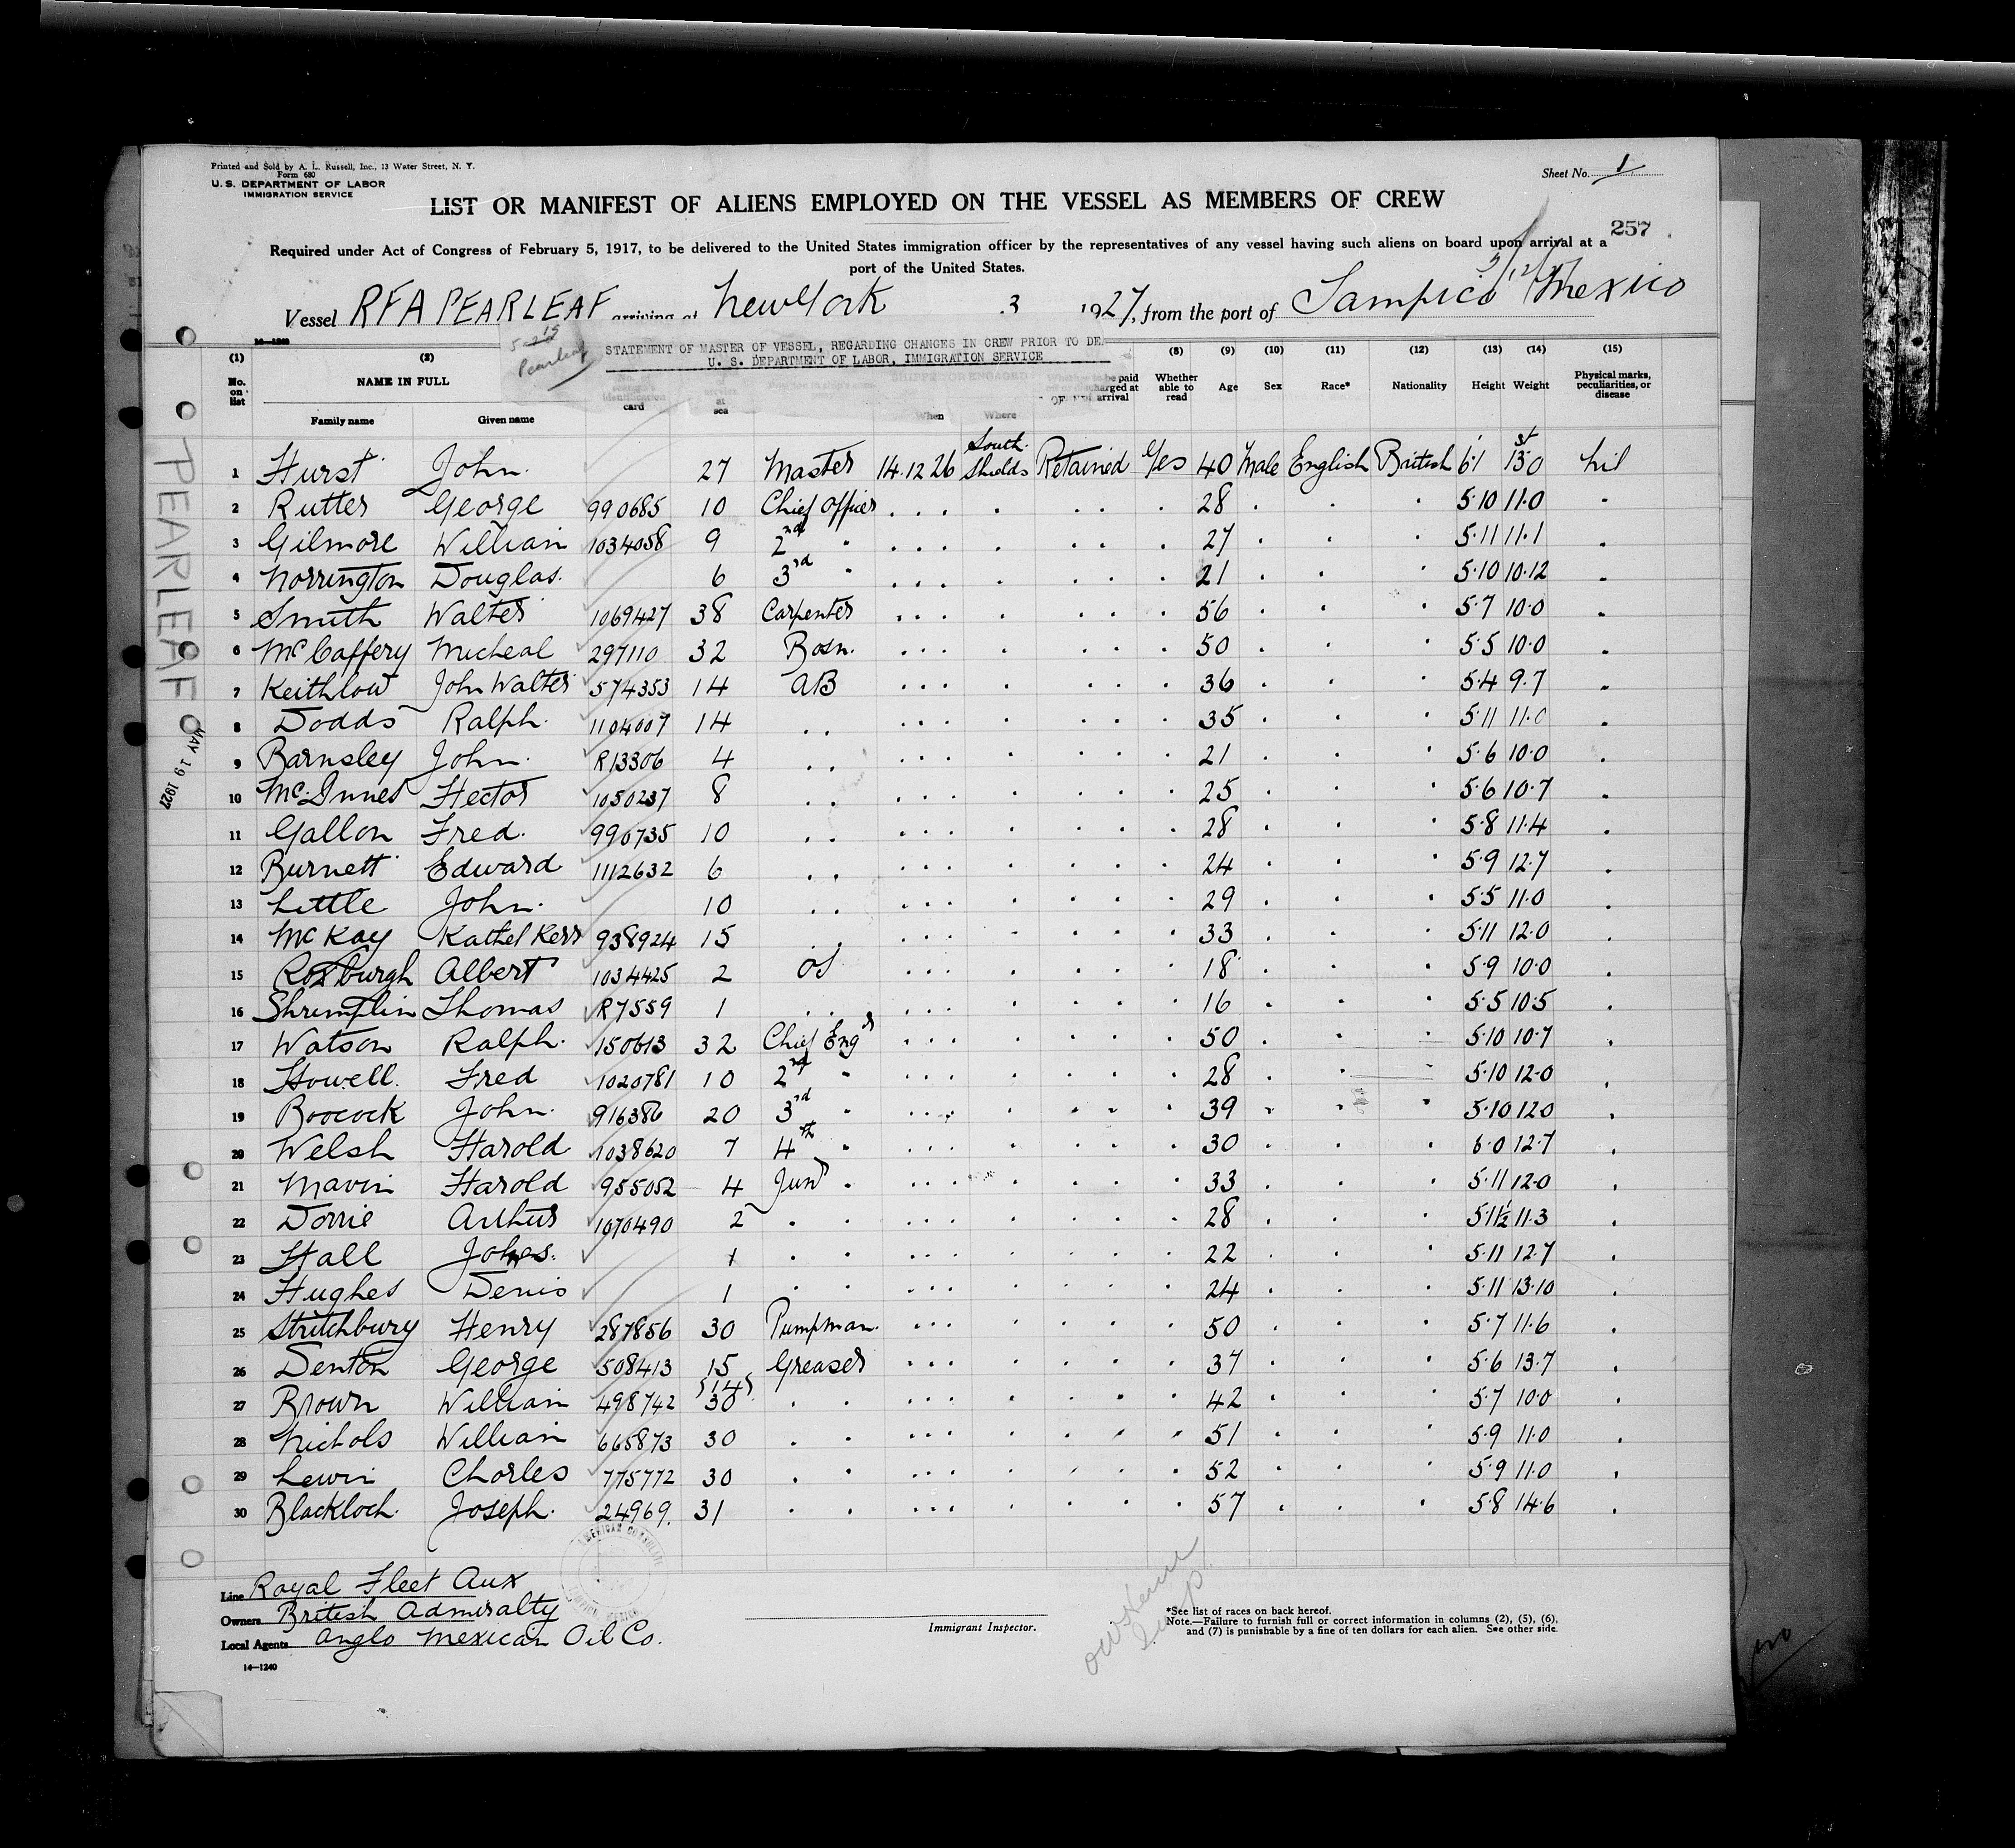 Printed and Sold by A. L. Russell, Inc., 13 Water Street, N. Y.
Form 680
U. S. DEPARTMENT OF LABOR
IMMIGRATION SERVICE
Sheet No. 1
LIST OR MANIFEST OF ALIENS EMPLOYED ON THE VESSEL AS MEMBERS OF CREW
257
Required under Act of Congress of February 5, 1917, to be delivered to the United States immigration officer by the representatives of any vessel having such aliens on board upon arrival at a
port of the United States.
Vessel RFA PEARLEAF arriving at New York 3 1927, from the port of Tampico Mexico
Pearleaf
STATEMENT OF MASTER OF VESSEL, REGARDING CHANGES IN CREW PRIOR TO DE
U. S. DEPARTMENT OF LABOR, IMMIGRATION SERVICE
(1) (2) (8) (9) (10) (11) (12) (13) (14) (15)
No. on list NAME IN FULL card at sea When Where arrival Whether able to read Age Sex Race* Nationality Height Weight Physical marks, peculiarities, or disease
Family name Given name
1 Hurst John. 27 Master 14.12.26 South Shields Retained Yes 40 Male English British 6·1 13·0 Nil
2 Rutter George 990685 10 Chief Officer . . . . . . . 28 . . . 5·10 11·0 .
3 Gilmore William 1034058 9 2nd " . . . . . . . 27 . . . 5·11 11·1 .
4 Norrington Douglas. 6 3rd " . . . . . . . 21 . . . 5·10 10·12 .
5 Smith Walter 1069427 38 Carpenter . . . . . . . 56 . . . 5·7 10·0 .
6 McCaffery Micheal 297110 32 Bosn. . . . . . . . 50 . . . 5·5 10·0 .
7 Keithlow John Walter 574353 14 AB . . . . . . . 36 . . . 5·4 9·7 .
8 Dodds Ralph. 1104007 14 . . . . . . . . . 35 . . . 5·11 11·0 .
9 Barnsley John. R13306 4 . . . . . . . . . 21 . . . 5·6 10·0 .
10 McInnes Hector 1050237 8 . . . . . . . . . 25 . . . 5·6 10·7 .
11 Gallon Fred. 990735 10 . . . . . . . . . 28 . . . 5·8 11·4 .
12 Burnett Edward 1112632 6 . . . . . . . . . 24 . . . 5·9 12·7 .
13 Little John. 10 . . . . . . . . . 29 . . . 5·5 11·0 .
14 McKay Kathel Kerr 938924 15 . . . . . . . . . 33 . . . 5·11 12·0 .
15 Roxburgh Albert 1034425 2 OS . . . . . . . 18 . . . 5·9 10·0 .
16 Shrimplin Thomas R7559 1 . . . . . . . . . 16 . . . 5·5 10·5 .
17 Watson Ralph. 150613 32 Chief Engr . . . . . . . 50 . . . 5·10 10·7 .
18 Howell. Fred 1020781 10 2nd " . . . . . . . 28 . . . 5·10 12·0 .
19 Boocock John. 916386 20 3rd " . . . . . . . 39 . . . 5·10 12·0 .
20 Welsh Harold 1038620 7 4th " . . . . . . . 30 . . . 6·0 12·7 .
21 Mavin Harold 955052 4 Junr " . . . . . . . 33 . . . 5·11 12·0 .
22 Dorrie Arthur 1070490 2 . . . . . . . . . 28 . . . 5·1½ 11·3 .
23 Hall 1 . . . . . . . . . 22 . . . 5·11 12·7 .
24 Hughes Denis 1 . . . . . . . . . 24 . . . 5·11 13·10 .
25 Stritchbury Henry 287856 30 Pumpman. . . . . . . . 50 . . . 5·7 11·6 .
26 Denton George 508413 15 Greaser . . . . . . . 37 . . . 5·6 13·7 .
27 Brown William 498742 14 30 . . . . . . . . . 42 . . . 5·7 10·0 .
28 Nichols William 665873 30 . . . . . . . . . 51 . . . 5·9 11·0 .
29 Lewin Charles 775772 30 . . . . . . . . . 52 . . . 5·9 11·0 .
30 Blackloch. Joseph. 24969. 31 . . . . . . . . . 57 . . . 5·8 14·6 .
PEARLEAF
MAY 19 1927
AMERICAN CONSULATE
TAMPICO MEXICO
Line Royal Fleet Aux
Owners British Admiralty
Local Agents Anglo Mexican Oil Co.
14—1240
Immigrant Inspector.
*See list of races on back hereof.
Note.—Failure to furnish full or correct information in columns (2), (5), (6),
and (7) is punishable by a fine of ten dollars for each alien. See other side.